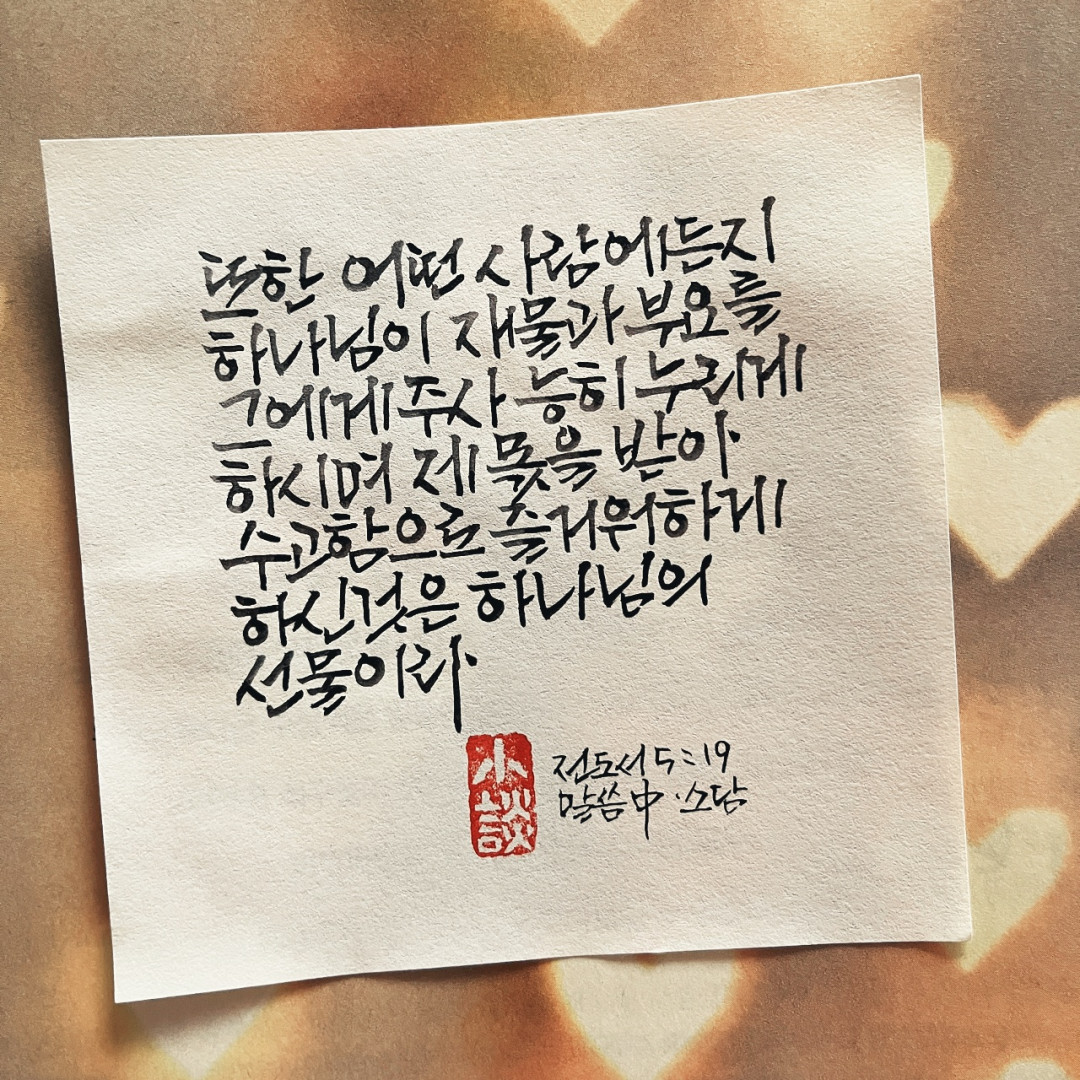 또한 어떤 사람에든지
하나님이 재물과 부요를
그에게 주사 능히 누리게
하시며 제 몫을 받아
수고함으로 즐거워하게
하신것은 하나님의
선물이라.
小談
전도서 5:19
말씀中.소담